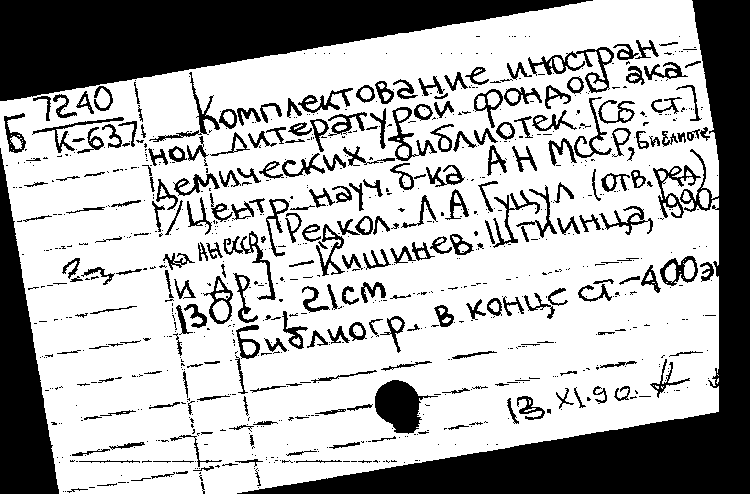 Б 7240
К-637
Комплектование иностран-
ной литературой фондов ака-
демических библиотек: [Сб. ст.]
//Центр. науч. б-ка АН МССР, Библиоте-
ка АН СССР. [Редкол.: Л.А. Гуцул (отв. ред)
и др.]. – Кишинев: Штиинца, 1990.
130 с., 21 см
Библиогр. в конце ст. – 400 эк
13.XI.90.